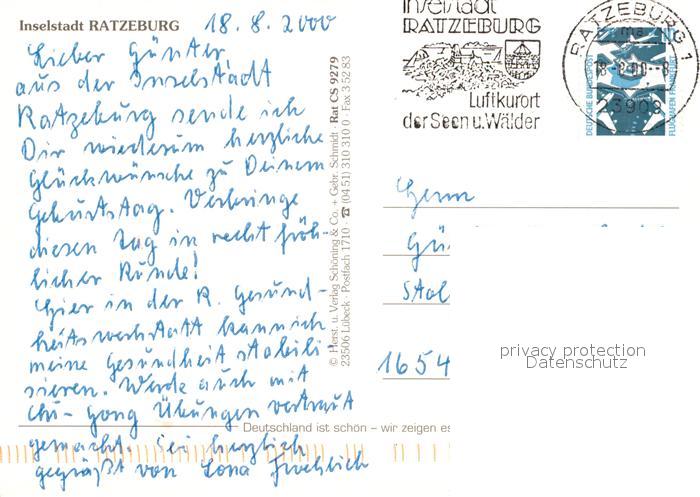 Inselstadt RATZEBURG
18. 8. 2000
Lieber Günter,
aus der Inselstadt
Ratzeburg sende ich
Dir wiederum herzliche
Glückwünsche zu Deinem
Geburtstag. Verbringe
diesen Tag in recht fröh-
licher Runde!
Hier in der R. Gesund-
heitswerkstatt kann ich
meine Gesundheit stabili
sieren. Werde auch mit
Chi-Gong Übungen vertraut
gemacht. Sei herzlich
gegrüßt von Lona Froehlich
© Herst. u. Verlag Schöning & Co. + Gebr. Schmidt · Rat CS 9279
23506 Lübeck · Postfach 1710 ☎ (04 51) 310 310 0 · Fax 3 52 83
Deutschland ist schön – wir zeigen es
Inselstadt
RATZEBURG
Luftkurort
der Seen u. Wälder
RATZEBURG 1
23909
DEUTSCHE BUNDESPOST
FLUGHAFEN FRANKFURT
Herrn
Gü
Stol
1654
privacy protection
Datenschutz